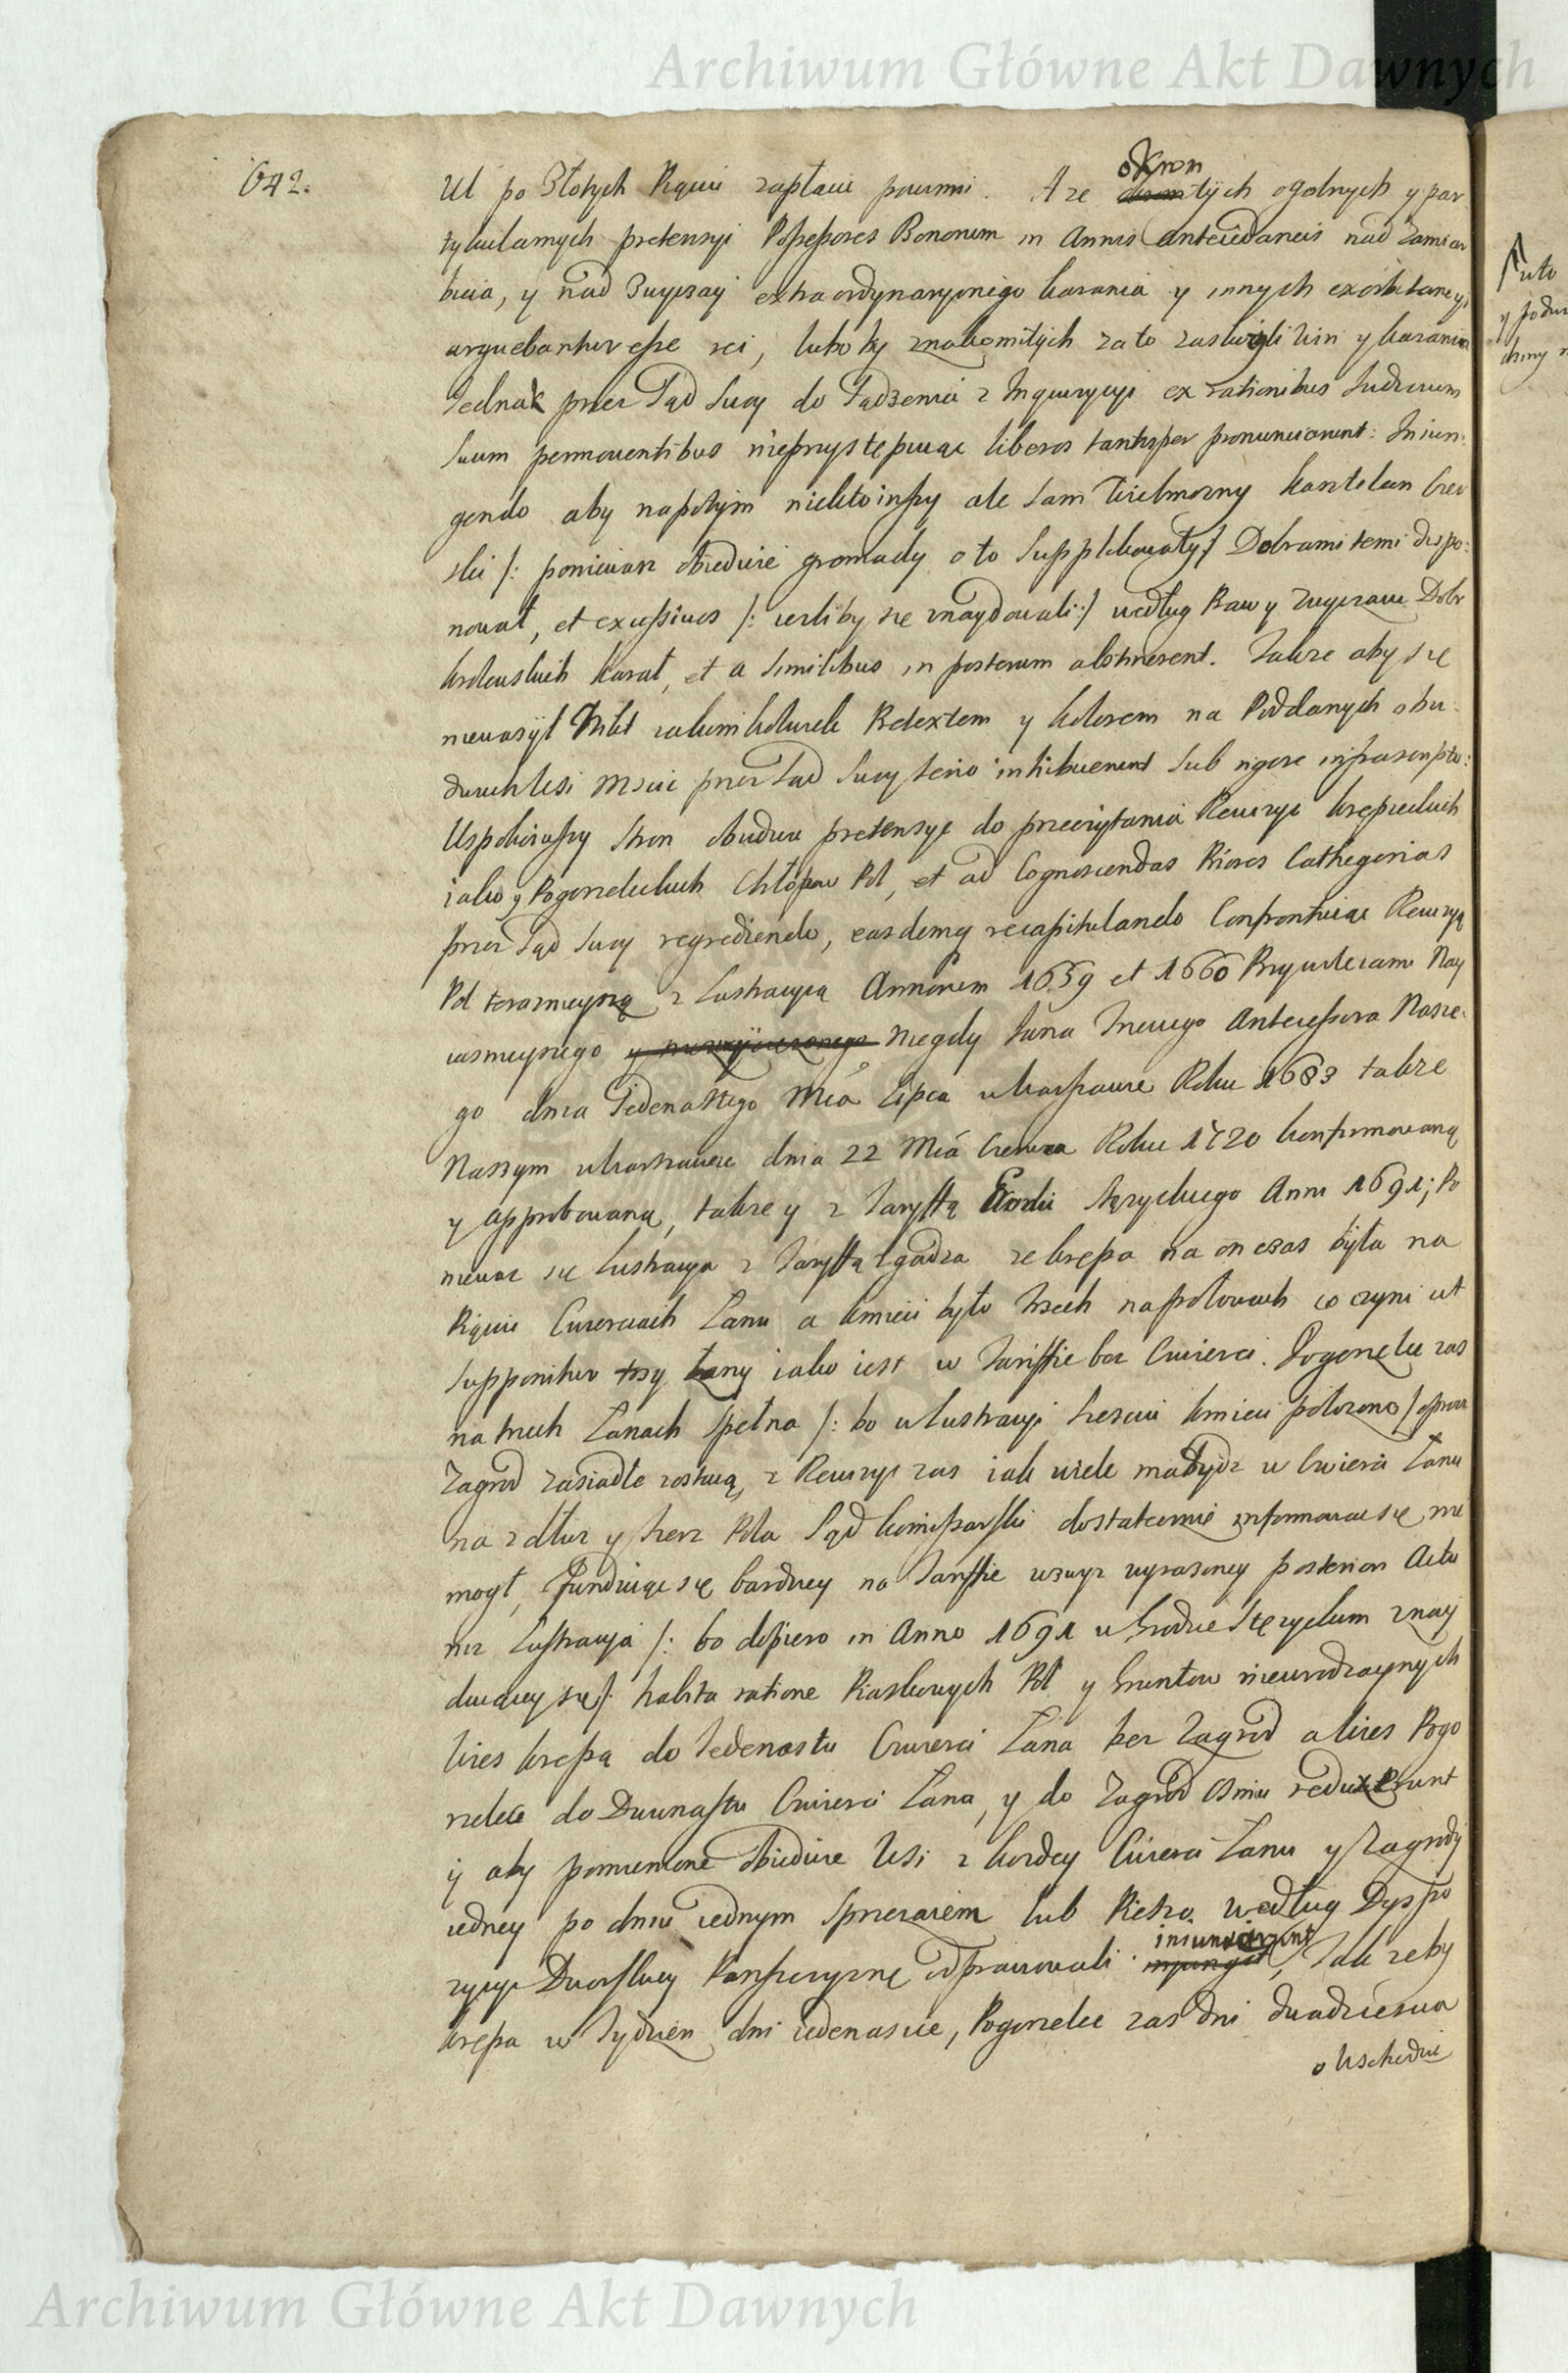 Archiwum Główne Akt Dawnych
642.
okrom
Ul po Złotych Pięciu zapłacić powinni. A że tych ogolnych y par
tykularnych pretensyi Possessores Bonorum in Annis antecedaneis nad zamiar
bicia, y nad Zwyczay extraordynaryinego karania y innych exorbitancyi
arguebantur esse rei, luboby znakomitych za to zasłużyli win y karania
Jednak przez Sąd Swoy do Sądzenia z Inquizycyi ex rationibus Judicium
Suum permoventibus nieprzystępuiąc liberos tantisper pronunciarunt: Iniun-
gendo aby napotym niektoinszy ale Sam Wielmozny Kasztelan
ski /: poniewasz obiedwie gromady o to Supplikowały :/ Dobrami temi dispo:
nował, et excessivos /: ieśliby się znaydowali :/ według Praw y Zwyczaiu Dobr
krolewskich karał, et a Similibus in posterum abstinerent. Takze aby się
niewazył Nikt iakimkolwiek Pretextem y kolorem na Poddanych obu-
dwuch Wsi Mscić przez Sąd Swoy Serio inhibuerunt Sub rigore infrascripto:
Uspokoiwszy Stron obudwu pretensye do przeczytania Rewizyi krępieckich
iako y Pogorzeleckich Chłopow Pol, et ad Cognoscendas Priores Cathegorias
przez Sąd Swoy regrediendo, easdemq recapitulando Confrontuiąc Rewizyą
Pol teraznieyszą z Lustracyą Annorum 1659 et 1660 Przywileiami Nay
iasnieyszego y niezwyciężonego Niegdy Jana Trzeciego Antecessora Nasze-
go dnia Jedenastego Mca Lipca w Warszawie Roku 1683 takze
Naszym w Warszawie dnia 22 Mca Czerwca Roku 1720 konfirmowaną
y approbowaną, takze y z Taryffą Grodu Stęzyckiego Anni 1691; Po
niewaz się Lustracya z Taryffą zgadza ze krępa na on czas była na
Pięciu Cwierciach Łanu a kmieci było trzech na połowach co czyni ut
Supponitur trzy Łany iako iest w Tariffie bez Cwierci. Pogorzelce zas
na trzech Łanach Spełna /: bo w Lustracyi Szesciu kmieci połozono / oprocz
Zagrod zasiadłe zostaią, z Rewizyi zas iak wiele ma bydz w Cwierci Łanu
na zdłuz y szerz Pola Sąd kommissarski dostatecznie informować się nie
mogł, funduiąc się bardziey na Taryffie wzwyz wyrazoney posteriori Actu
niz Lustracya /: bo dopiero in Anno 1691 w Grodzie Stęzyckim znay
duiącey się /: habita ratione Piaskowych Pol y Gruntow nieurodzaynych
Wies krępą do Jedenastu Cwierci Łana bez Zagrod a Wies Pogo
rzelce do Dwunastu Cwierci Łana, y do Zagrod Osmiu reduxerunt
iż aby pomienione obiedwie Wsi z kozdey Cwierci Łanu y Zagrody
iedney po dniu iednym Sprzezaiem lub Pieszo według Dyspo
iniunxerunt
zycyi Dworskiey Panszczyznę odprawowali. , Tak zeby
krępa w Tydzien dni iedenascie, Pogorzelce zas dni dwadziescia
o Wschodzie
Archiwum Główne Akt Dawnych